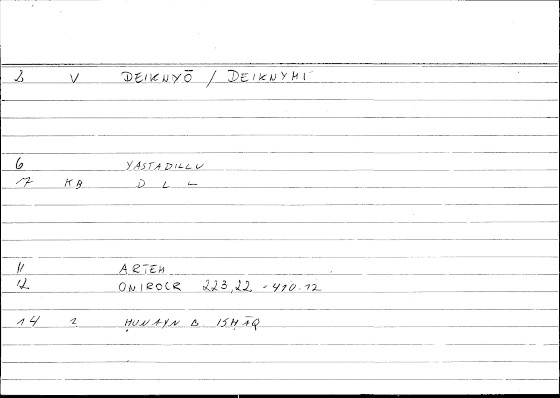 2 V DEIKNYŌ / DEIKNYMI
6 YASTADILLU
7 KB D L L
11 ARTEM
12 ONIROCR 223,22 - 410.12
14 2 ḤUNAYN B ISḤĀQ